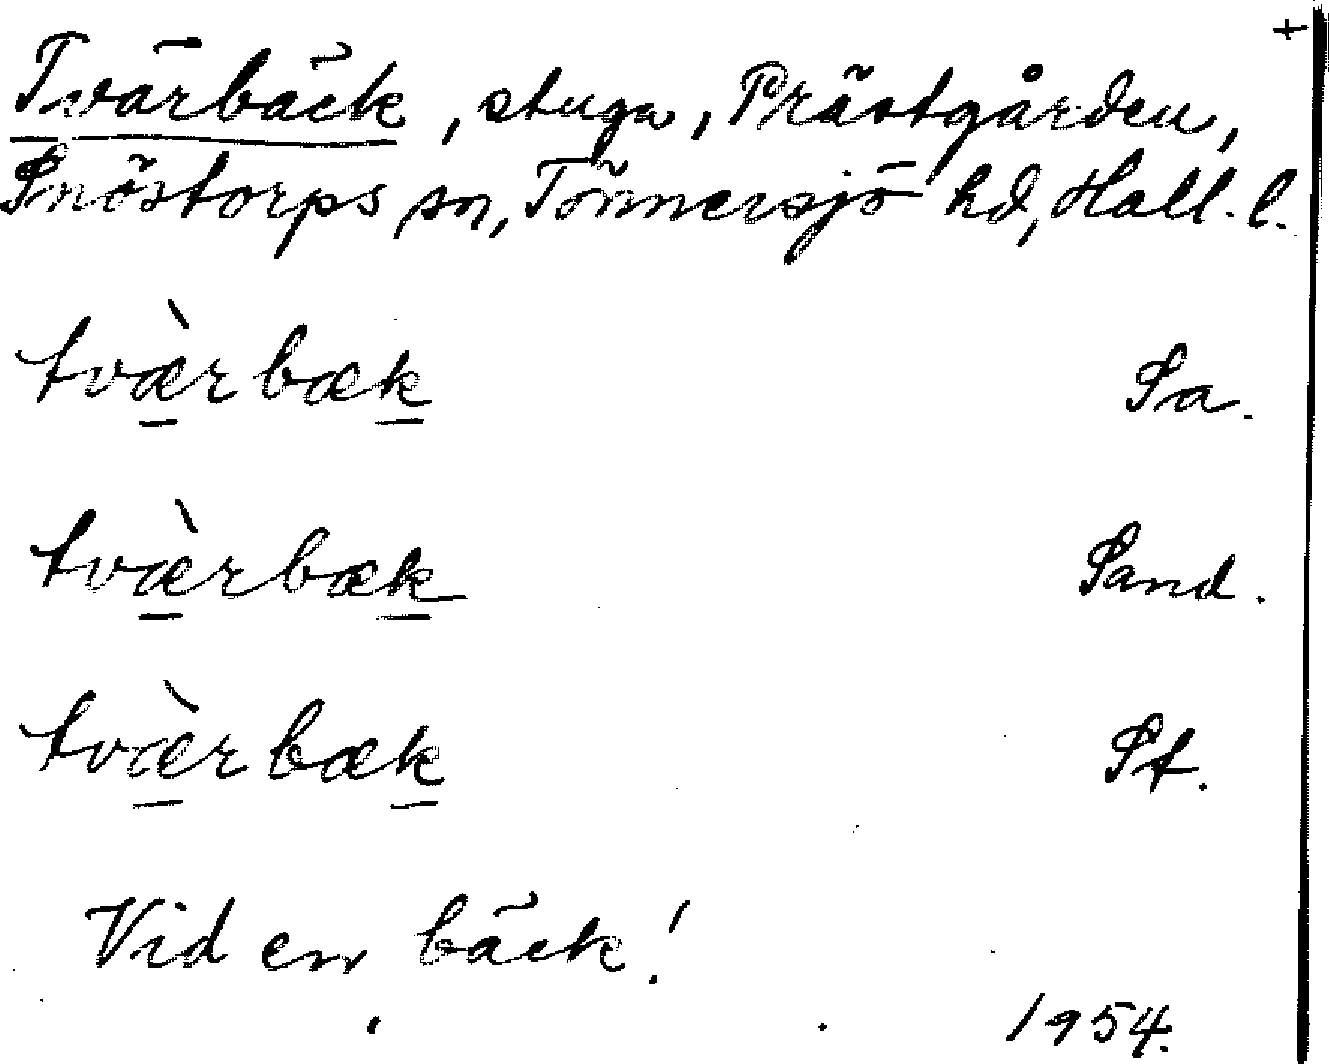 +
Tvärbäck, stuga, Prästgården,
Snöstorps sn, Tönnersjö hd, Hall. l.
tvæ̀rbæk Sa.
tvæ̀rbæk Sand.
tvæ̀rbæk St.
Vid en bäck!
1954.